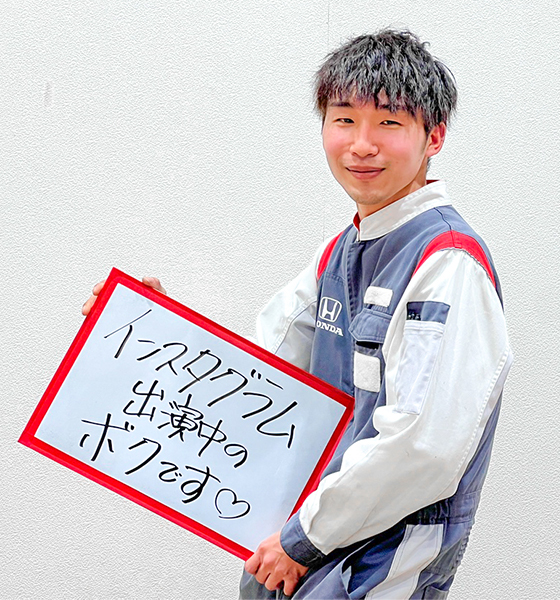 インスタグラム
出演中の
ボクです♡
HONDA